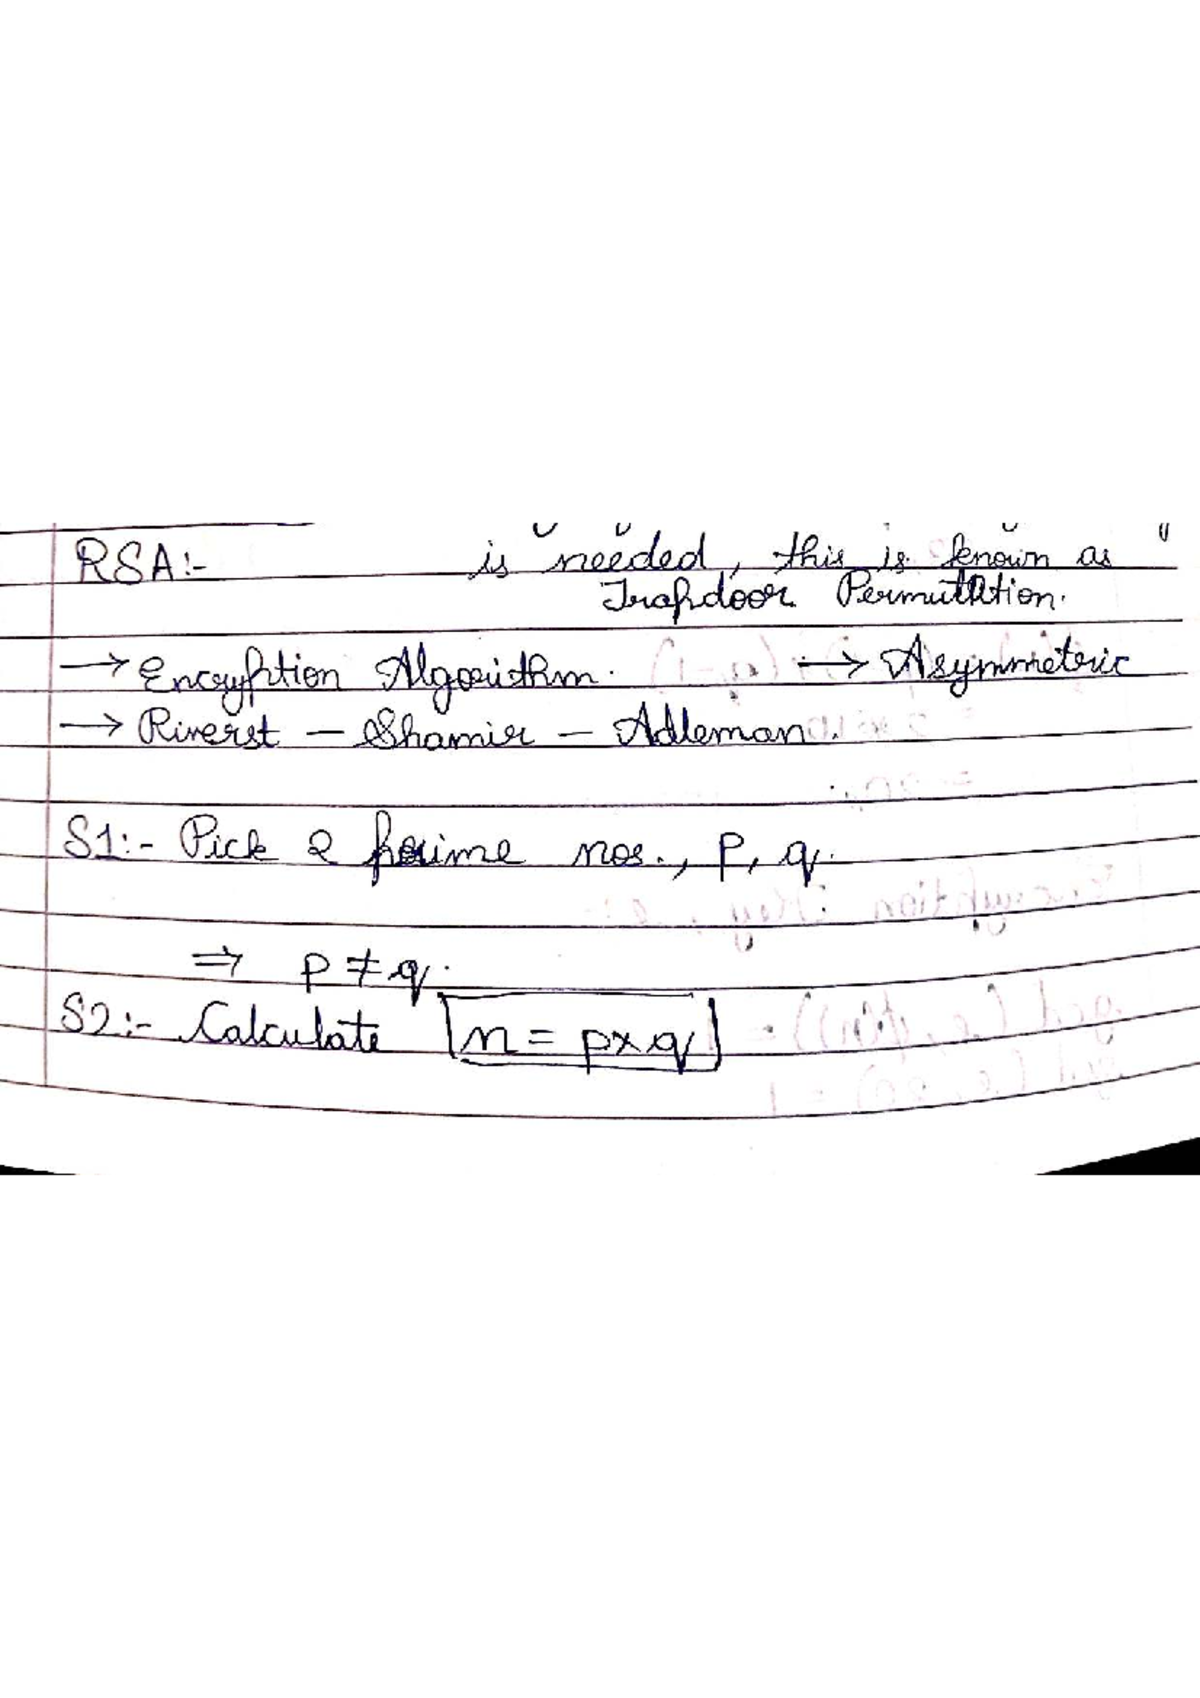 RSA:- is needed, this is known as
Trapdoor Permutation.
→ Encryption Algorithm. → Asymmetric
→ Riverst - Shamir - Adleman.
S1:- Pick 2 prime nos., P, q.
⇒ p ≠ q.
S2:- Calculate n = p×q